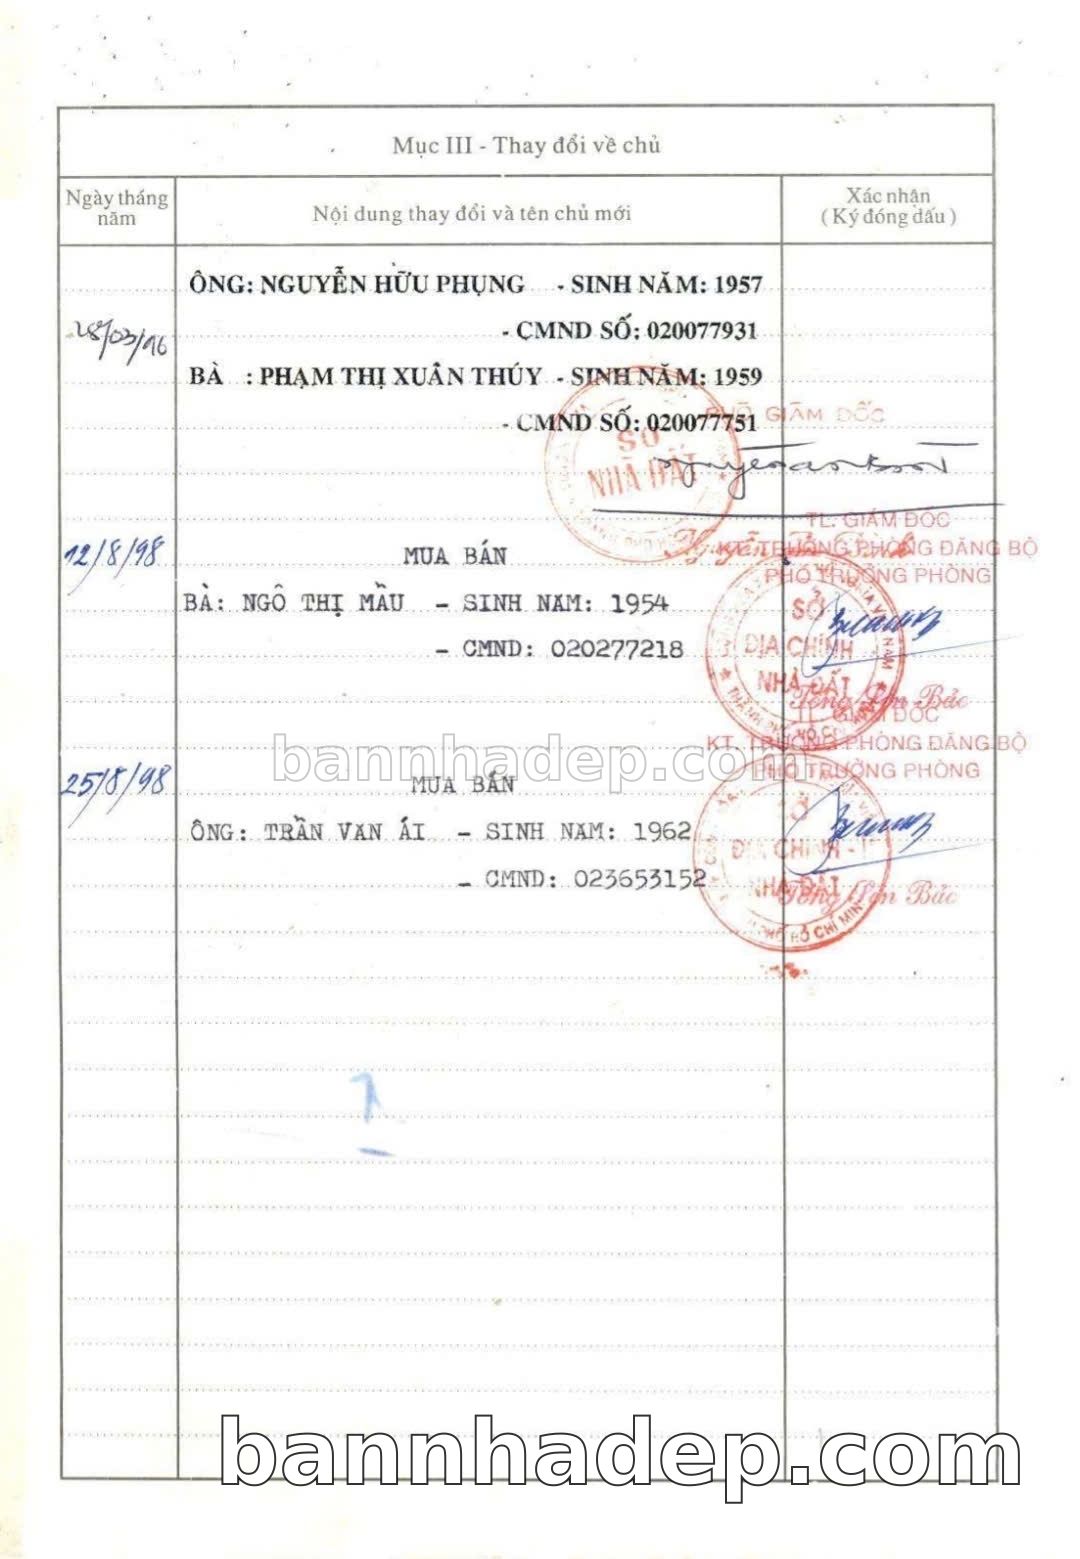 Mục III - Thay đổi về chủ
Ngày tháng năm
Nội dung thay đổi và tên chủ mới
Xác nhận
( Ký đóng dấu )
ÔNG: NGUYỄN HỮU PHỤNG - SINH NĂM: 1957
28/03/96
- CMND SỐ: 020077931
BÀ : PHẠM THỊ XUÂN THÚY - SINH NĂM: 1959
- CMND SỐ: 020077751
PHÓ GIÁM ĐỐC
SỞ
NHÀ ĐẤT
TL. GIÁM ĐỐC
KT. TRƯỞNG PHÒNG ĐĂNG BỘ
PHÓ TRƯỞNG PHÒNG
12/8/98
MUA BÁN
BÀ: NGÔ THỊ MẦU - SINH NAM: 1954
- CMND: 020277218
SỞ
ĐỊA CHÍNH
NHÀ ĐẤT
Tống Sơn Bắc
TL. GIÁM ĐỐC
KT. TRƯỞNG PHÒNG ĐĂNG BỘ
PHÓ TRƯỞNG PHÒNG
bannhadep.com
25/8/98
MUA BÁN
ÔNG: TRẦN VAN ÁI - SINH NAM: 1962
- CMND: 023653152
SỞ
ĐỊA CHÍNH -
NHÀ ĐẤT
Tống Sơn Bắc
1
bannhadep.com